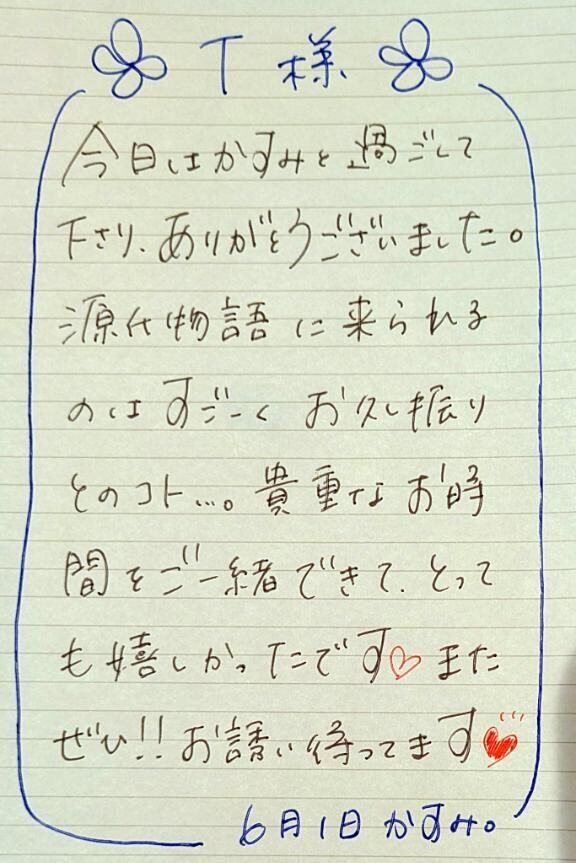 T様
今日はかすみと過ごして
下さり、ありがとうございました。
源氏物語に来られる
のはすごーくお久し振り
とのコト…。貴重なお時
間をご一緒できて、とって
も嬉しかったです♡また
ぜひ!!お誘い待ってます♥
6月1日 かすみ。